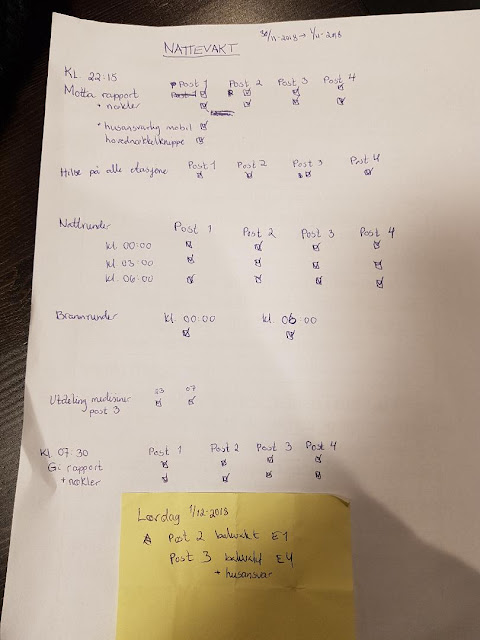 30/11-2018 → 1/12-2018
NATTEVAKT
Kl. 22:15 Post 1 Post 2 Post 3 Post 4
Motta rapport
+ nøkler
+ husansvarlig mobil
hovednøkkelknippe
Hilse på alle etasjene Post 1 Post 2 Post 3 Post 4
Nattrunder Post 1 Post 2 Post 3 Post 4
kl. 00:00
kl. 03:00
kl. 06:00
Brannrunder kl. 00:00 kl. 06:00
Utdeling medisiner 07
post 3
Kl. 07:30 Post 1 Post 2 Post 3 Post 4
Gi rapport
+ nøkler
Lørdag 1/12-2018
Post 2 bakvakt E1
Post 3 bakvakt E4
+ husansvar